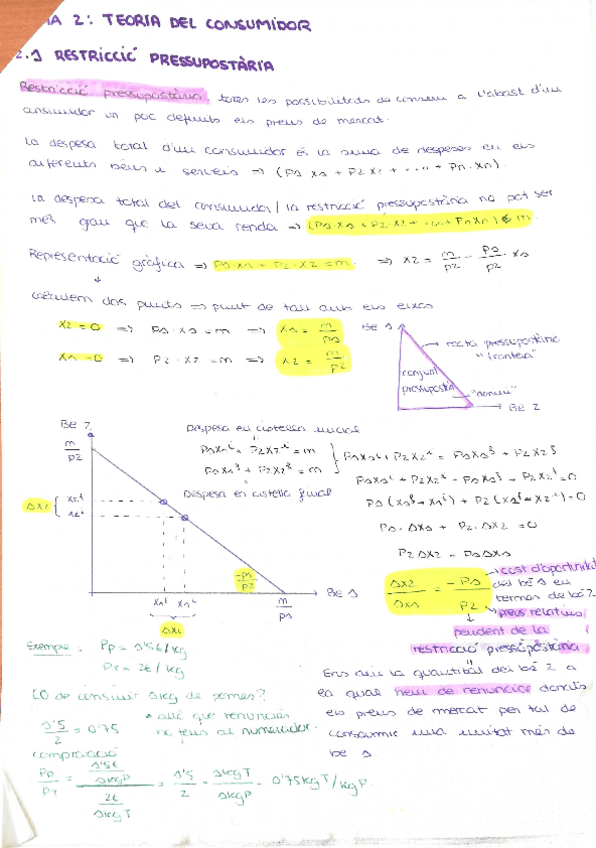 MA 2: TEORIA DEL CONSUMIDOR
2.1 RESTRICCIÓ PRESSUPOSTÀRIA
Restricció pressupostària: totes les possibilitats de consum a l'abast d'un
consumidor un poc definits els preus de mercat.
La despesa total d'un consumidor és la suma de despeses en els
diferents béns i serveis => (P1x1 + P2x2 + .... + Pn.xn).
La despesa total del consumidor/la restricció pressupostària no pot ser
més gran que la seva renda => (P1x1 + P2.x2 + ... + Pnxn) ≤ m
Representació gràfica => P1.x1 + P2.x2 = m => x2 = m/P2 - P1/P2 . x1
calculem dos punts => punt de tall amb els eixos
x2 = 0 => P1.x1 = m => x1 = m/P1
x1 = 0 => P2.x2 = m => x2 = m/P2
Be 1
recta pressupostària
"frontera"
conjunt
pressupostari
Be 2
Be 2
m/P2
Despesa en cistella inicial
P1x1i + P2x2i = m
P1x1f + P2x2f = m
Despesa en cistella final
P1x1i + P2x2i = P1x1f + P2x2f
P1x1i + P2x2i - P1x1f - P2x2f = 0
P1.Δx1 + P2.Δx2 = 0
P2Δx2 = P1Δx1
Δx2
-P1/P2
Be 1
x1i x1f
m/P1
Δx1
Δx2/Δx1 = -P1/P2
cost d'oportunitat
del bé 1 en
termes de bé 2
preus relatius
pendent de la
restricció pressupostària
Ens diu la quantitat del bé 2 a
la qual hem de renunciar donats
els preus de mercat per tal de
consumir una unitat més de
be 1
Exemple: Pp = 1'5€/kg
PT = 2€/kg
CO de consumir 1kg de pomes?
1'5/2 = 0'75
* allò que renuncies
ho tens al numerador.
comprovació
Pp/PT = (1'5€/1kgP)/(2€/1kgT) = 1'5/2 . 1kgT/1kgP = 0'75kgT/kgP.